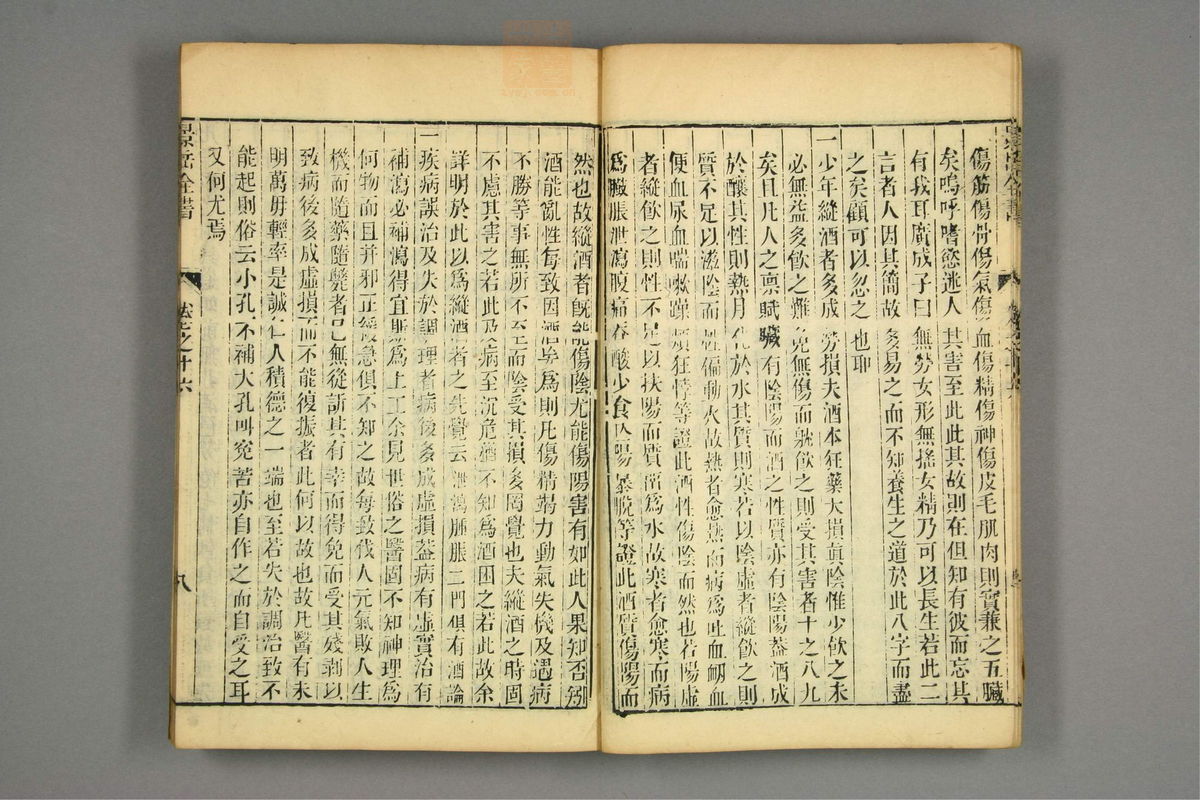 傷筋傷骨傷氣傷血傷精傷神傷皮毛肌肉則實兼之五臟
矣嗚呼嗜慾迷人其害至此此其故則在但知有彼而忘其
有我耳廣成子曰無勞女形無搖女精乃可以長生若此二
言者人因其簡故多易之而不知養生之道於此八字而盡
之矣顧可以忽之也耶
一少年縱酒者多成勞損夫酒本狂藥大損真陰惟少飲之未
必無益多飲之難免無傷而飲之則受其害者十之八九
矣且凡人之禀賦臟有陰陽而酒之性質亦有陰陽蓋酒成
於釀其性則熱汁化於水其質則寒若以陰虛者縱飲之則
質不足以滋陰而性偏動火故熱者愈熱而病為吐血衄血
便血尿血喘嗽躁煩狂悖等證此酒性傷陰而然也若陽虛
者縱飲之則性不足以扶陽而質留為水故寒者愈寒而病
為臟脹泄瀉腹痛吞酸少食亡陽暴脫等證此酒質傷陽而
然也故縱酒者既能傷陰尤能傷陽害有如此人果知否矧
酒能亂性每致因酒妄為則凡傷精竭力動氣失機及遇病
不勝等事無所不至而陰受其損多罔覺也夫縱酒之時固
不慮其害之若此及病至沉危猶不知為酒困之若此故余
詳明於此以為縱酒者之先覺云泄瀉腫脹二門俱有酒論
一疾病誤治及失於調理者病後多成虛損蓋病有虛實治有
補瀉必補瀉得宜斯為上工余見世俗之醫固不知神理為
何物而且并邪正緩急俱不知之故每致伐人元氣敗人生
機而隨藥隨斃者已無從訴其有幸而得免而受其殘剥以
致病後多成虛損而不能復振者此何以故也故凡醫有未
明萬毋輕率是誠仁人積德之一端也至若失於調治致不
能起則俗云小孔不補大孔叫寃苦亦自作之而自受之耳
又何尤焉
景岳全書
卷之十六
八